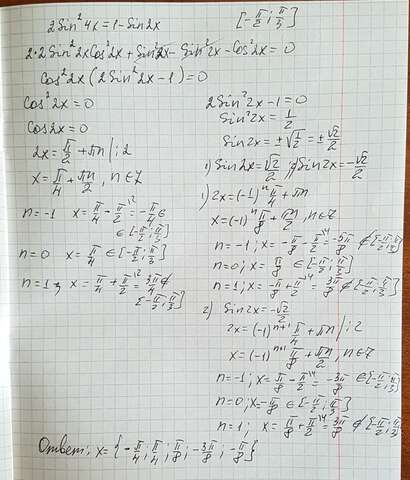 2Sin²4x = 1 - Sin2x [-π/2; π/3]
2·2Sin²2xCos²2x + Sin²2x - Sin²2x - Cos²2x = 0
Cos²2x (2Sin²2x - 1) = 0
Cos²2x = 0
Cos2x = 0
2x = π/2 + πn | :2
x = π/4 + πn/2, n∈Z
n = -1 x = π/4 - π/2 = -π/4 ∈
∈ [-π/2; π/3]
n = 0 x = π/4 ∈ [-π/2; π/3]
n = 1, x = π/4 + π/2 = 3π/4 ∉
[-π/2; π/3]
2Sin²2x - 1 = 0
Sin²2x = 1/2
Sin2x = ±√1/2 = ±√2/2
1) Sin2x = √2/2 2) Sin2x = -√2/2
1) 2x = (-1)ⁿ π/4 + πn
x = (-1)ⁿ π/8 + πn/2, n∈Z
n = -1; x = -π/8 - π/2 = -5π/8 ∉ [-π/2; π/3]
n = 0; x = π/8 ∈ [-π/2; π/3]
n = 1; x = -π/8 + π/2 = 3π/8 ∉ [-π/2; π/3]
2) Sin2x = -√2/2
2x = (-1)ⁿ⁺¹ π/4 + πn | :2
x = (-1)ⁿ⁺¹ π/8 + πn/2, n∈Z
n = -1; x = π/8 - π/2 = -3π/8 ∈ [-π/2; π/3]
n = 0; x = -π/8 ∈ [-π/2; π/3]
n = 1; x = π/8 + π/2 = 3π/8 ∉ [-π/2; π/3]
Ответ: x = {-π/4; π/4; π/8; -3π/8; -π/8}